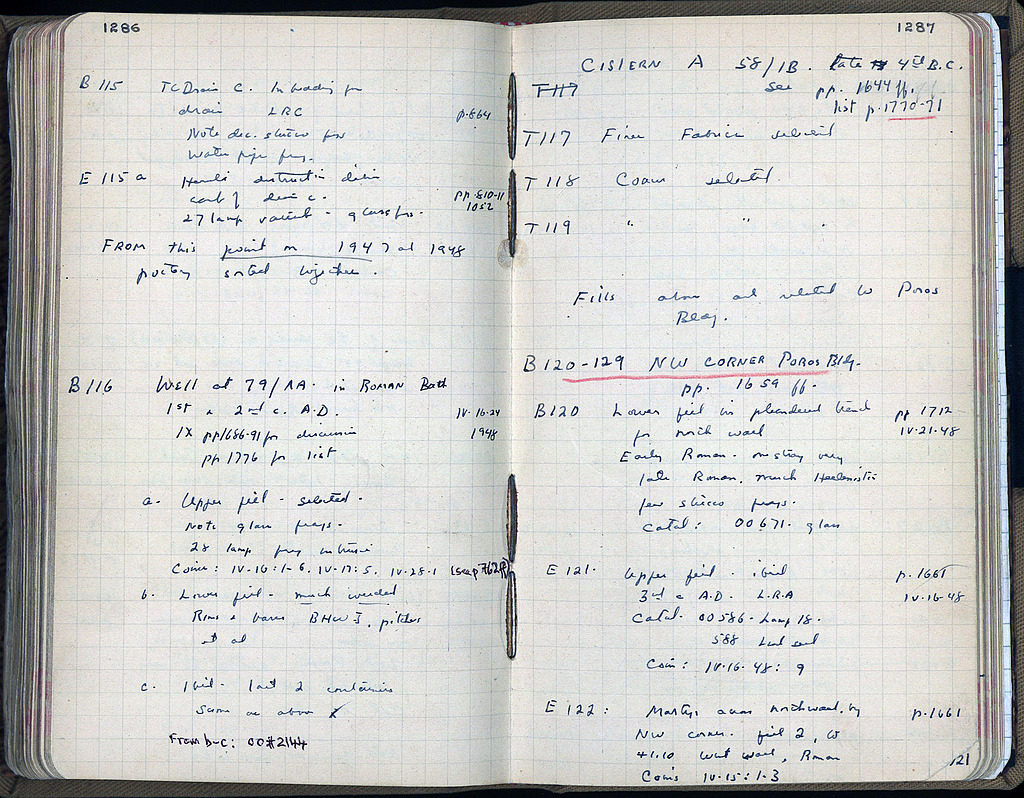 1286
B 115 TC Drain C. In bedding for
drain LRC
p. 864
Note dec. stucco frs
Water pipe frag.
E 115 a
cont of drain c.
pp. 810-11
1052
27 lamp glass frs.
FROM this point on 1947 and 1948
pottery sorted together.
B 116 WELL at 79/AA. in ROMAN Bath
1st & 2nd c. A.D.
IV-16-24
1948
IX pp 1686-91 for discussion
pp 1776 for list
a. Upper fill - selected.
Note glass frags.
28 lamp frag intrusive
Coins: IV-16: 1-6, IV-17: 5, IV-28-1 (see p 762 ff)
b. Lower fill - much weeded
Rims & bases BHW I, pitchers
et al
c. Ibid - last 2 containers
Same as above
From b-c: 00#2144
1287
CISTERN A 58/IB. late 4th B.C.
see pp. 1644 ff.
list p. 1770-71
T117
T117 Finer Fabrics selected
T 118 Coarse selected.
T 119 " "
Fills above and related to Poros
Bldg.
B 120-129 NW CORNER POROS Bldg.
pp. 1659 ff.
B120 Lower fill in plundered trench
for north wall
pp 1712
IV-21-48
Early Roman - one stray very
late Roman, much Hellenistic
few stucco frags.
Catal: 00671. glass
E 121. Upper fill - ibid
p. 1661
3rd c A.D. L.R.A
IV-16-48
Catal. 00586 - Lamp 18.
588
Coin: IV-16-48: 9
E 122: north wall, by
p. 1661
NW corner. fill 2, W
+1.10 West wall, Roman
Coins IV-15: 1-3
121